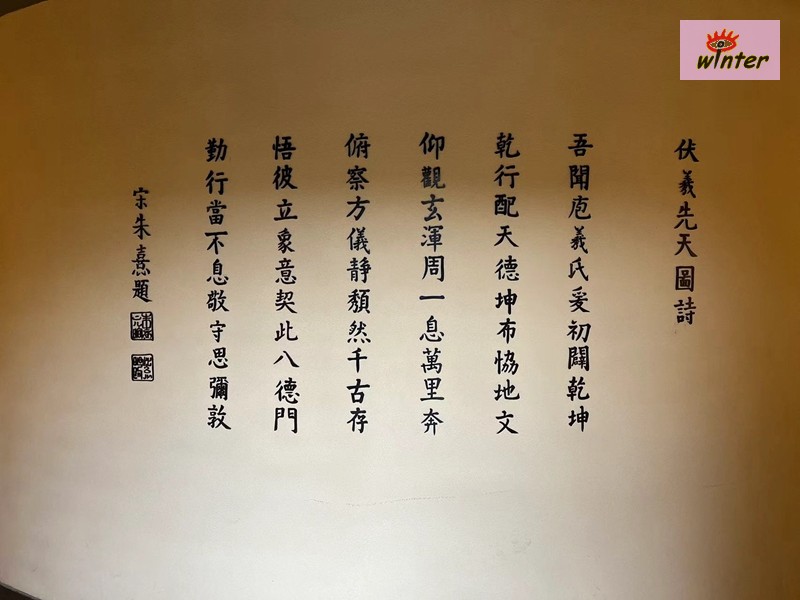 伏羲先天圖詩
吾聞庖羲氏爰初闢乾坤
乾行配天德坤布協地文
仰觀玄渾周一息萬里奔
俯察方儀靜頹然千古存
悟彼立象意契此八德門
勤行當不息敬守思彌敦
宋朱熹題
winter